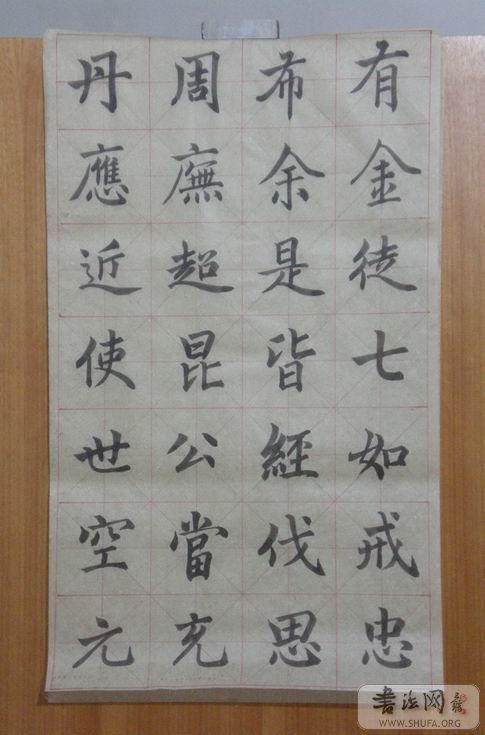 有金徒七如戒忠
布余是皆經伐思
周廡超昆公當充
丹應近使世空元
書法网
WWW.SHUFA.ORG